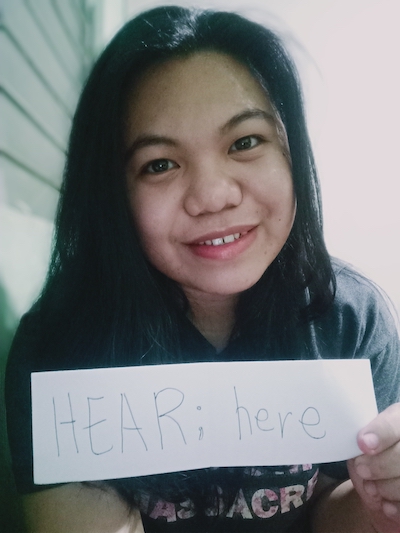 HEAR; here
MASSACRE